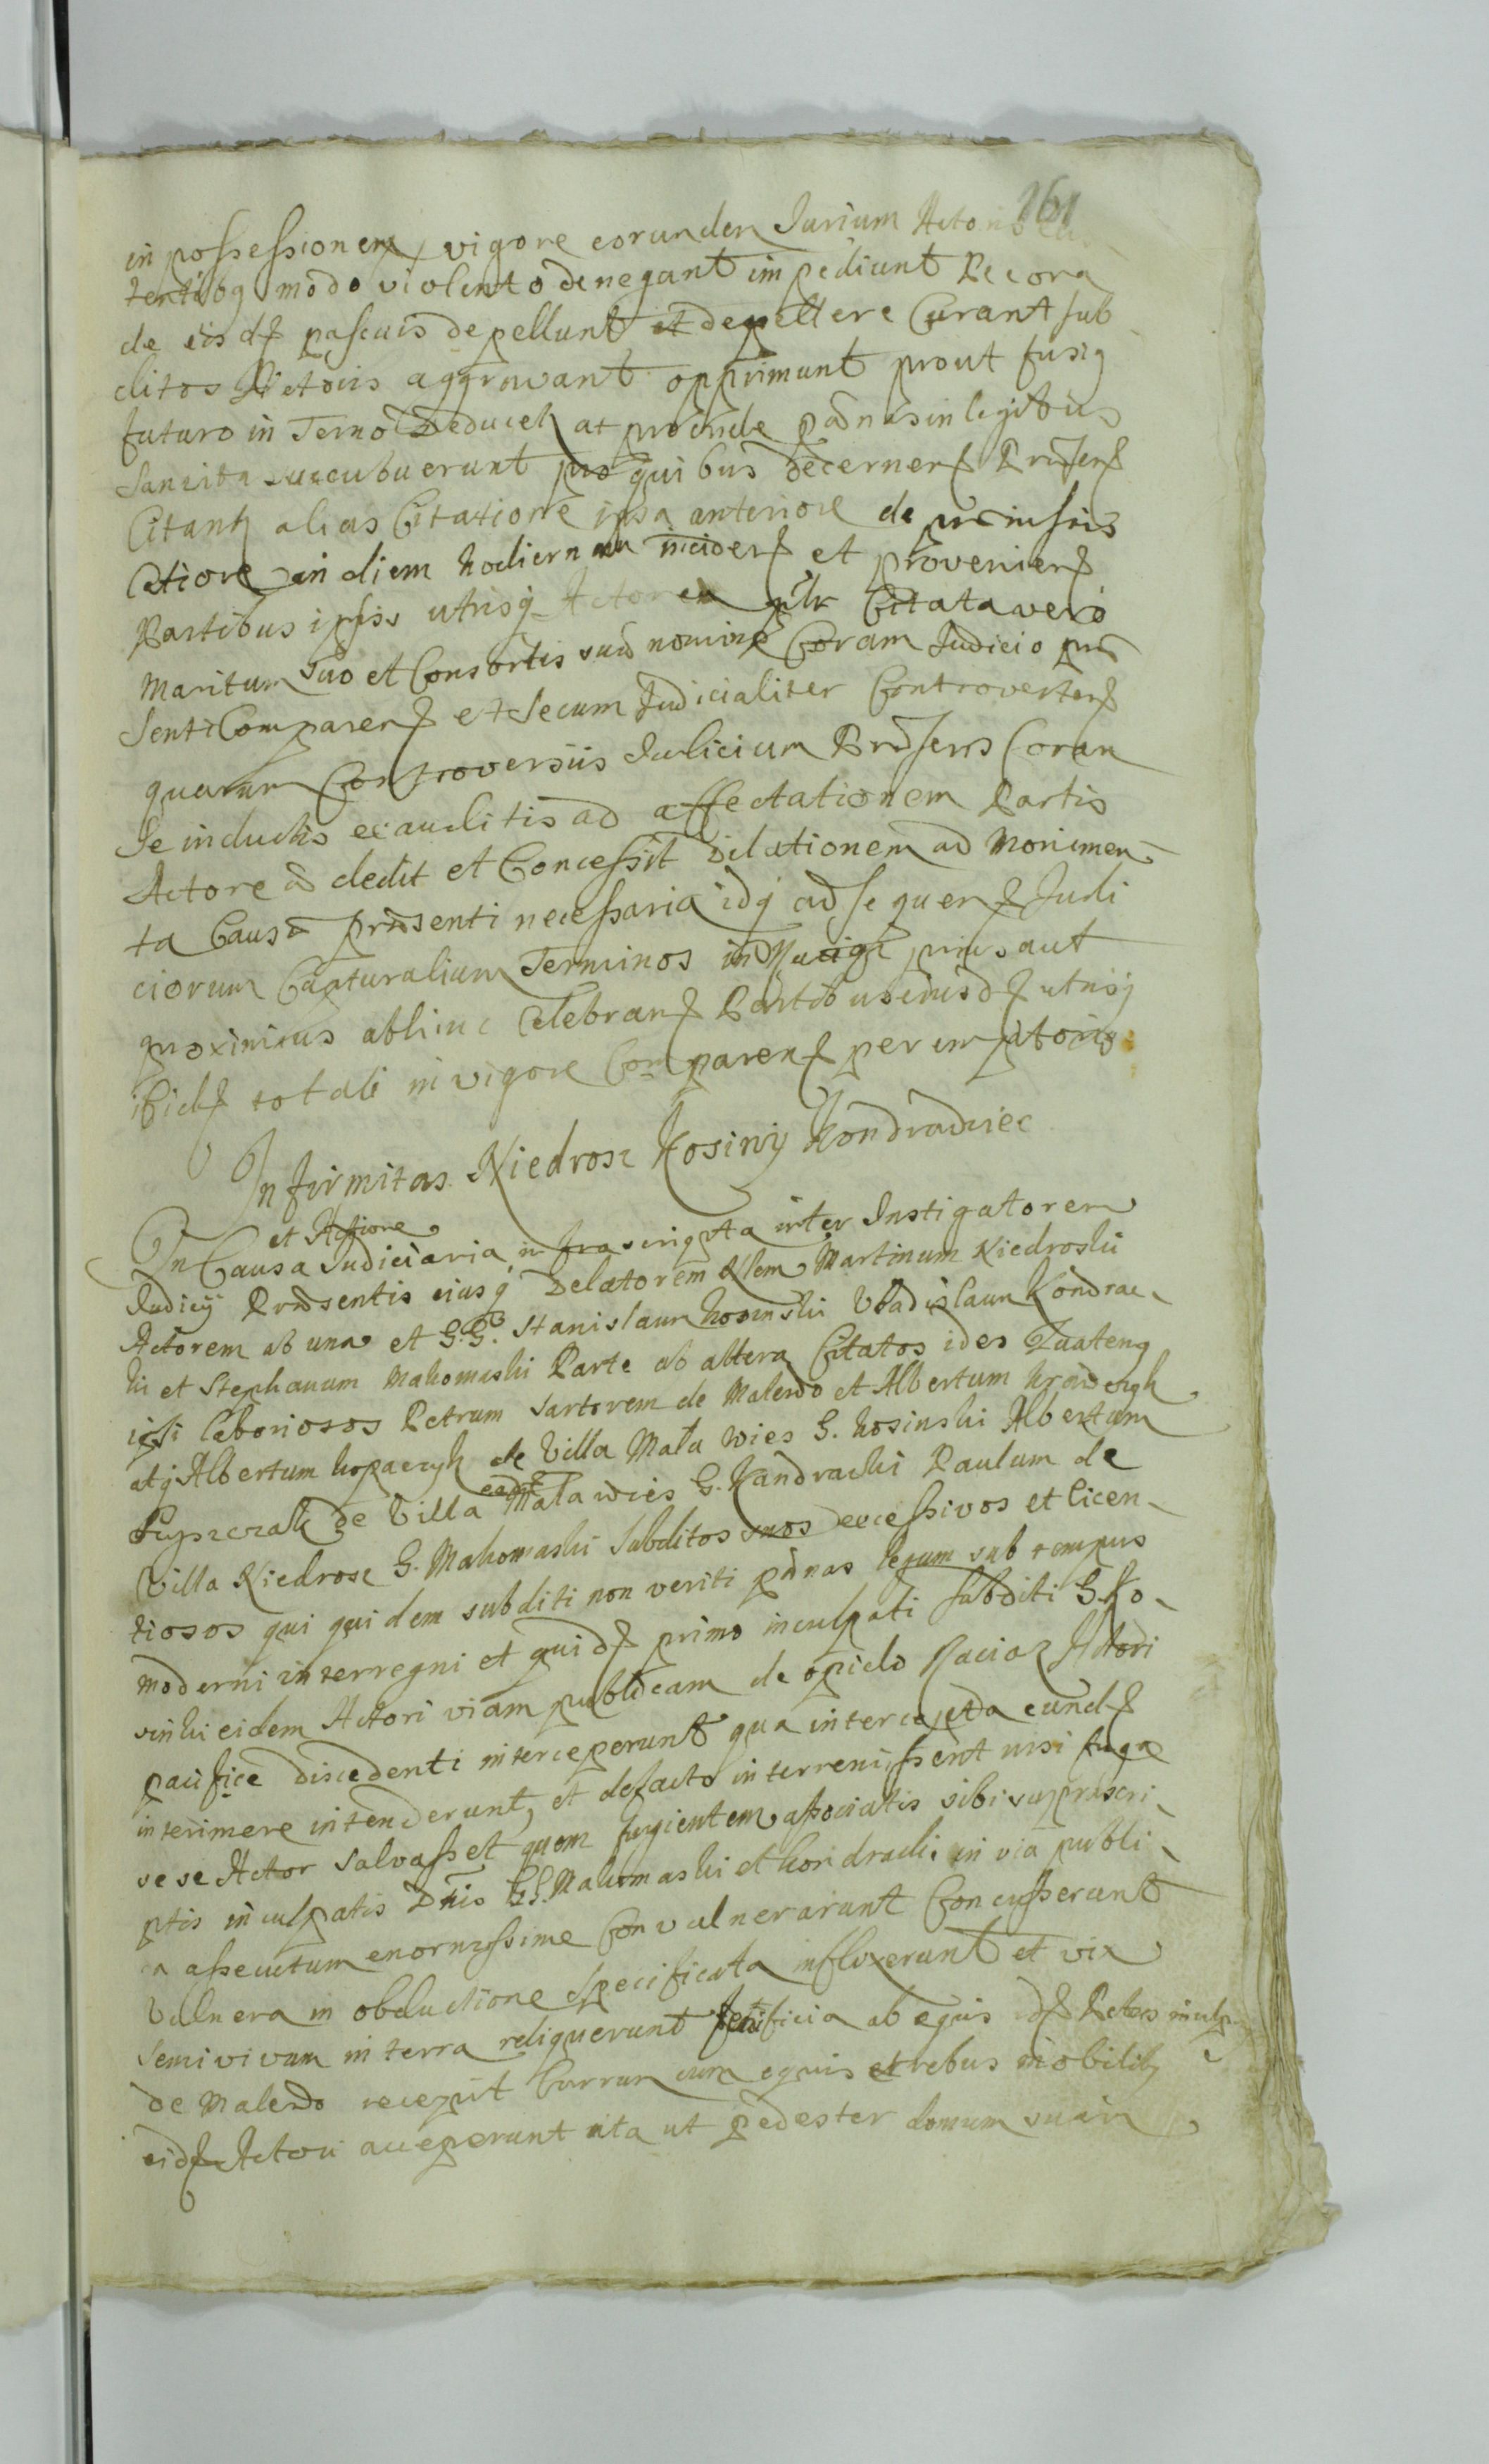 261
in possessionem vigore eorundem Iurium
modo violento denegant impediunt Pecora
de eisd pascuis depellunt et depellere Curant sub
ditos Actoris aggravant opprimunt prout fusig
futuro in Termo Deducet at proinde pænas in legibus
Sancita succubuerunt pro quibus decerner Præsen
Citant alias Citatione ipsa anteriore de
in diem hodiernam incider et provenien
Partibus ipsis utrisq Actorea Citata vero
Maritum suo et Consortis suæ nomine Coram Iudicio præ
senti Comparen et secum Iudicialiter Controverten
quarum Controversiis Iudicium Præsens Coram
se inductis exauditis ad affectationem Partis
Actoreæ dedit et Concessit Dilationem ad Monimen
ta Causæ præsenti necessaria idq ad sequen Iudi
ciorum Capturalium Terminos in prius aut
proximius abhinc Celebran Partibus eiusd utrisq
ibid totali in vigore Comparen peremptorio
Infirmitas Niedrosz Kosiny Kondradziec
et Actione
In Causa Iudiciaria infrascripta inter Instigatorem
Iudicij Præsentis eiusq Delatorem Martinum Niedroski
Actorem ab una et G.G. Stanislaum kosinski Vladislaum Kondrac
ki et Stephanum Makomaski Parte ab altera Citatos ideo Quateng
ipsi laboriosos Petrum Sartorem de Malewo et Albertum
atq Albertum kopaczyk de Villa Mała Wies G. kosinski Albertum
de Villa eadē Mała wies G. Kandracki Paulum de
Villa Niedrosz G. Makomaski Subditos suos excessivos et licen
tiosos qui quidem subditi non veriti pænas legum sub tempus
moderni interregni et quid primo inculpati subditi G. Ko
sinski eidem Actori viam publicam de opido Raciąz Actori
pacifice discedenti interceperunt qua intercepta eund
interimere intenderunt, et defacto interemissent nisi fuga
sese Actor salvasset quem fugientem associatis sibi suprascri
ptis inculpatis Dnis GG. Makomaski et kondracki in via publi
ca assecutum enormissime Convulnerarunt Concusserunt
Vulnera in obductione specificata inflixerunt et vix
semivivum in terra reliquerunt ab equis id
de Malewo recepit Currum cum equis et rebus mobilib
eid Actori acceperunt ita ut pedester domum suam